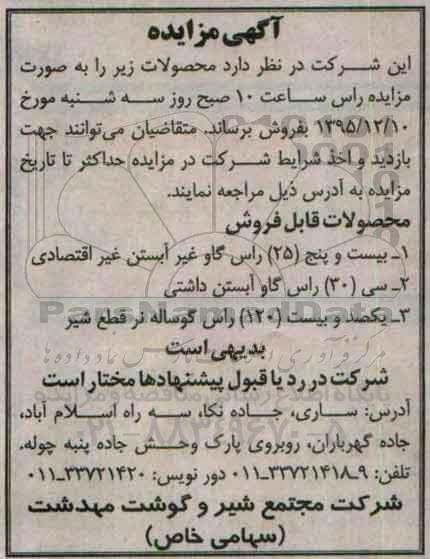 آگهی مزایده
این شرکت در نظر دارد محصولات زیر را به صورت
مزایده راس ساعت ۱۰ صبح روز سه شنبه مورخ
۱۳۹۵/۱۲/۱۰ بفروش برساند. متقاضیان می‌توانند جهت
بازدید و اخذ شرایط شرکت در مزایده حداکثر تا تاریخ
مزایده به آدرس ذیل مراجعه نمایند.
محصولات قابل فروش
۱ـ بیست و پنج (۲۵) راس گاو غیر آبستن غیر اقتصادی
۲ـ سی (۳۰) راس گاو آبستن داشتی
۳ـ یکصد و بیست (۱۲۰) راس گوساله نر قطع شیر
بدیهی است
شرکت در رد یا قبول پیشنهادها مختار است
آدرس: ساری، جاده نکا، سه راه اسلام آباد،
جاده گهرباران، روبروی پارک وحش جاده پنبه چوله،
تلفن: ۹ـ۳۳۷۲۱۴۱۸ـ۰۱۱ دور نویس: ۳۳۷۲۱۴۲۰ـ۰۱۱
شرکت مجتمع شیر و گوشت مهدشت
(سهامی خاص)
ParsNamadData
پایگاه اطلاع رسانی مناقصه و مزایده